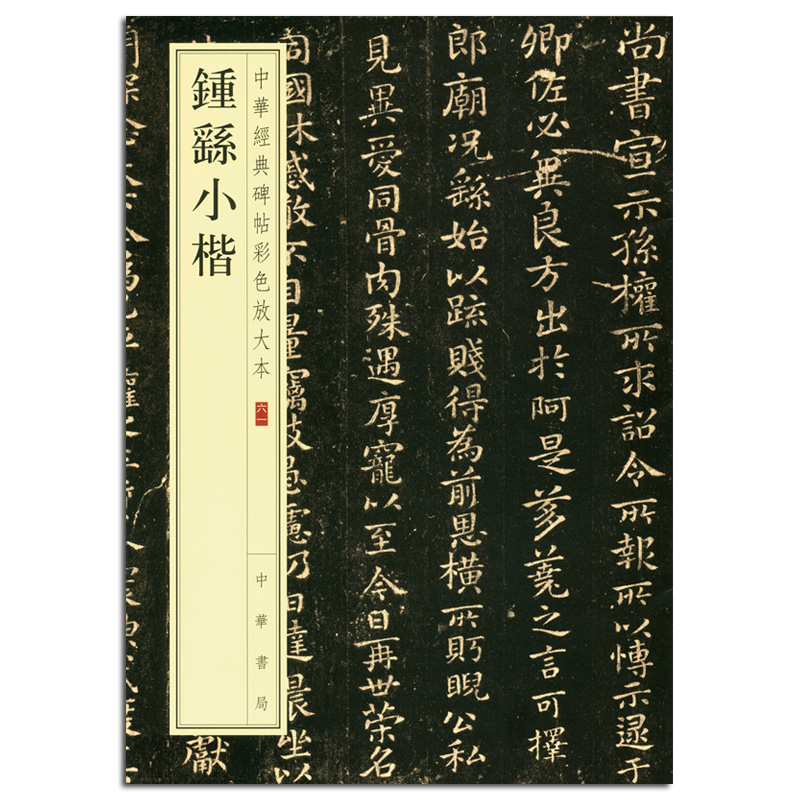 鍾繇小楷
中華經典碑帖彩色放大本
六一
中華書局
尚書宣示孫權所求詔令所報所以博示逮于
卿佐必冀良方出於阿是芻蕘之言可擇
郎廟况繇始以疏賤得為前恩橫所盻睨公私
見異愛同骨肉殊遇厚寵以至今日再世榮名
同國休慼敢不自量竊致愚慮仍日達晨坐以
獻